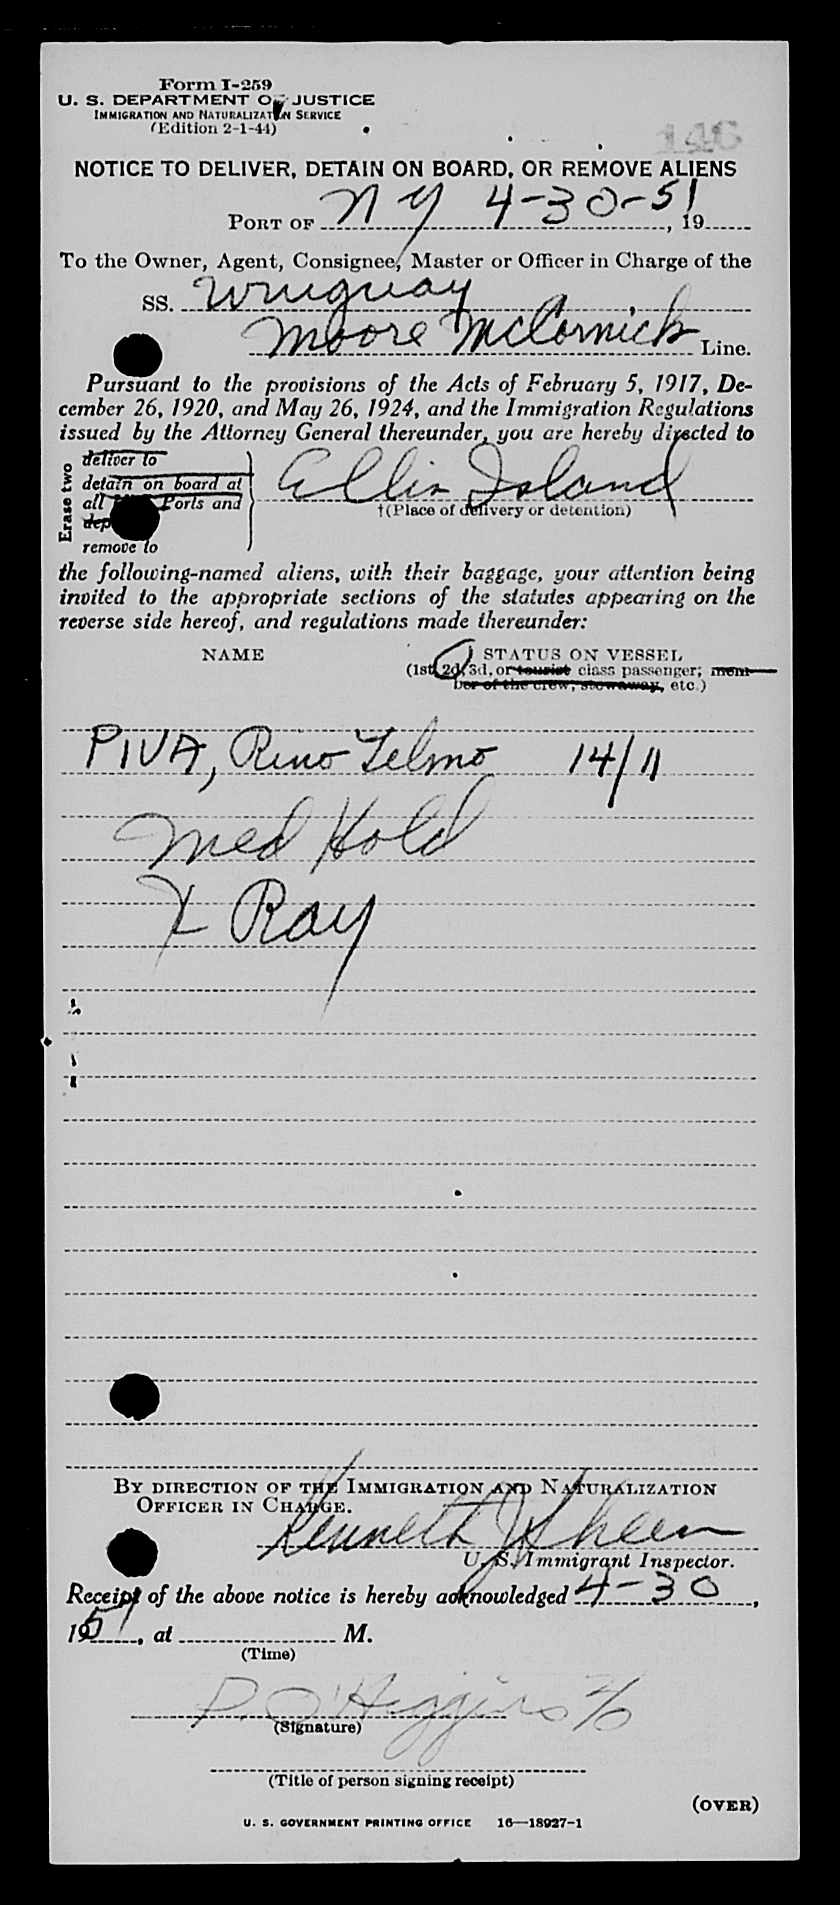 Form I-259
U. S. DEPARTMENT OF JUSTICE
IMMIGRATION AND NATURALIZATION SERVICE
(Edition 2-1-44)
146
NOTICE TO DELIVER, DETAIN ON BOARD, OR REMOVE ALIENS
PORT OF N Y 4-30-51, 19
To the Owner, Agent, Consignee, Master or Officer in Charge of the
SS. Uruguay
Moore McCormick Line.
Pursuant to the provisions of the Acts of February 5, 1917, De-
cember 26, 1920, and May 26, 1924, and the Immigration Regulations
issued by the Attorney General thereunder, you are hereby directed to
Erase two
deliver to
detain on board at
all Ports and
dep
remove to
Ellis Island
†(Place of delivery or detention)
the following-named aliens, with their baggage, your attention being
invited to the appropriate sections of the statutes appearing on the
reverse side hereof, and regulations made thereunder:
NAME STATUS ON VESSEL
(1st, 2d, 3d, or tourist class passenger; mem-
ber of the crew, stowaway, etc.)
PIVA, Rino Telmo 14/11
Med Hold
X Ray
BY DIRECTION OF THE IMMIGRATION AND NATURALIZATION
OFFICER IN CHARGE.
Kenneth J Sheen
U. S. Immigrant Inspector.
Receipt of the above notice is hereby acknowledged 4-30,
1951, at M.
(Time)
P. O'Higgins
(Signature)
(Title of person signing receipt)
(OVER)
U. S. GOVERNMENT PRINTING OFFICE 16—18927-1